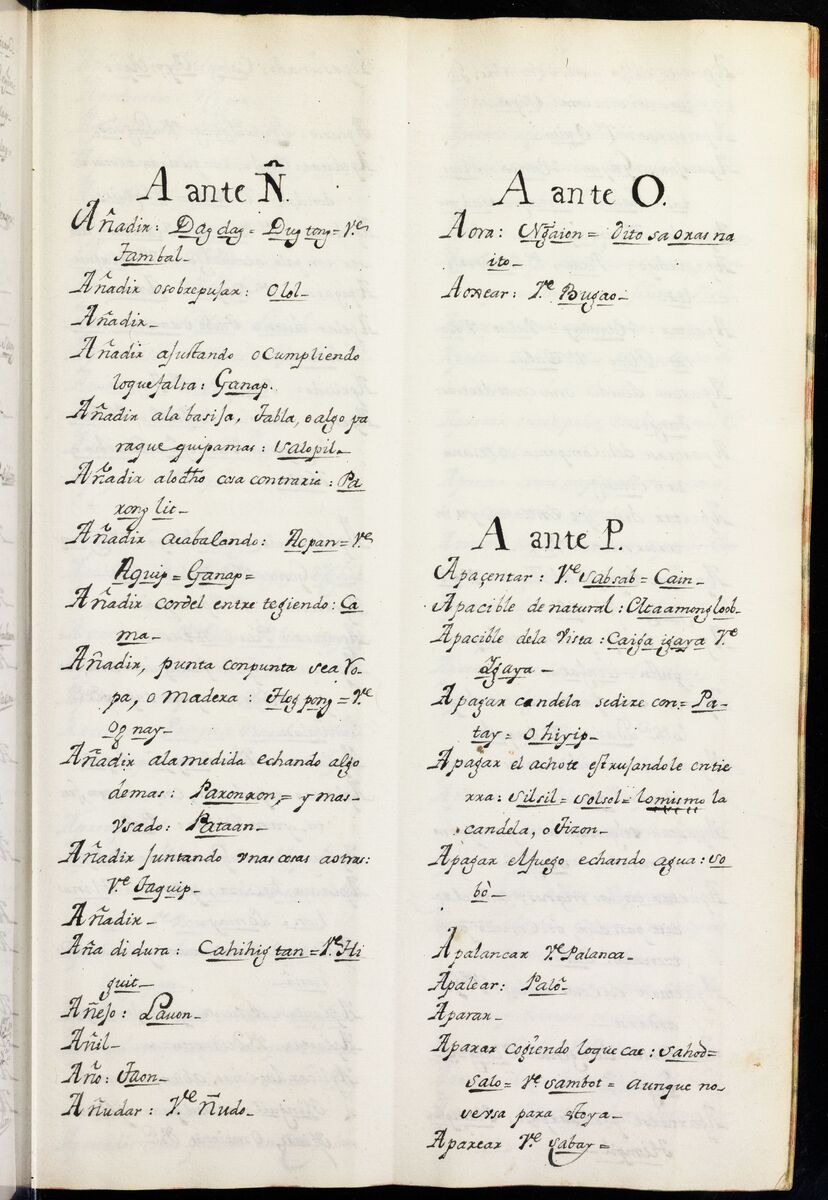 A ante Ñ.
Añadir: Dag dag = Dugtong = V.e
Tambal_
Añadir osobrepujar: Olol_
Añadir_
Añadir ajustando o cumpliendo
loque falta: Ganap.
Añadir ala basija, Tabla, o algo pa
raque quipamas: Salopil_
Añadir alodho cosa contraria: Pa
rong lit_
Añadir acabalando: Acpan = V.e
Aquip = Ganap =
Añadir cordel entre tegiendo: Ca
ma_
Añadir, punta conpunta sea Ro-
pa, o madera: Hogpong = V.e
Og nay_
Añadir ala medida echando algo
demas: Paronron, = y mas_
vsado: Pataan_
Añadir juntando vnas cosas aotras:
V.e Taquip_
Añadir_
Aña di dura: Cahihigtan = V.e Hi
guit_
Añejo: Lauon_
Añil_
Año: Taon_
Añudar: V.e Ñudo_
A ante O.
Aora: Ngaion = dito sa oras na
ito_
Aoxear: V.e Bugao_
A ante P.
Apaçentar: V.e Sabsab = Cain_
Apacible de natural: Mtaamongloob_
Apacible dela vista: Caiga igaya V.e
Igaya_
Apagar candela sedire con = Pa-
tay = Ohiyip_
Apagar el achote estrujandole entie
rra: Silsil = Solsol = lo mismo la
candela, o Tizon_
Apagar el fuego echando agua: So
bò_
Apalancar V.e Palanca_
Apalear: Palò_
Aparar_
Aparar cogiendo loque cae: Sahod =
Salo = V.e Sambot = aunque no_
seusa para stoya_
Aparear V.e Sabay =